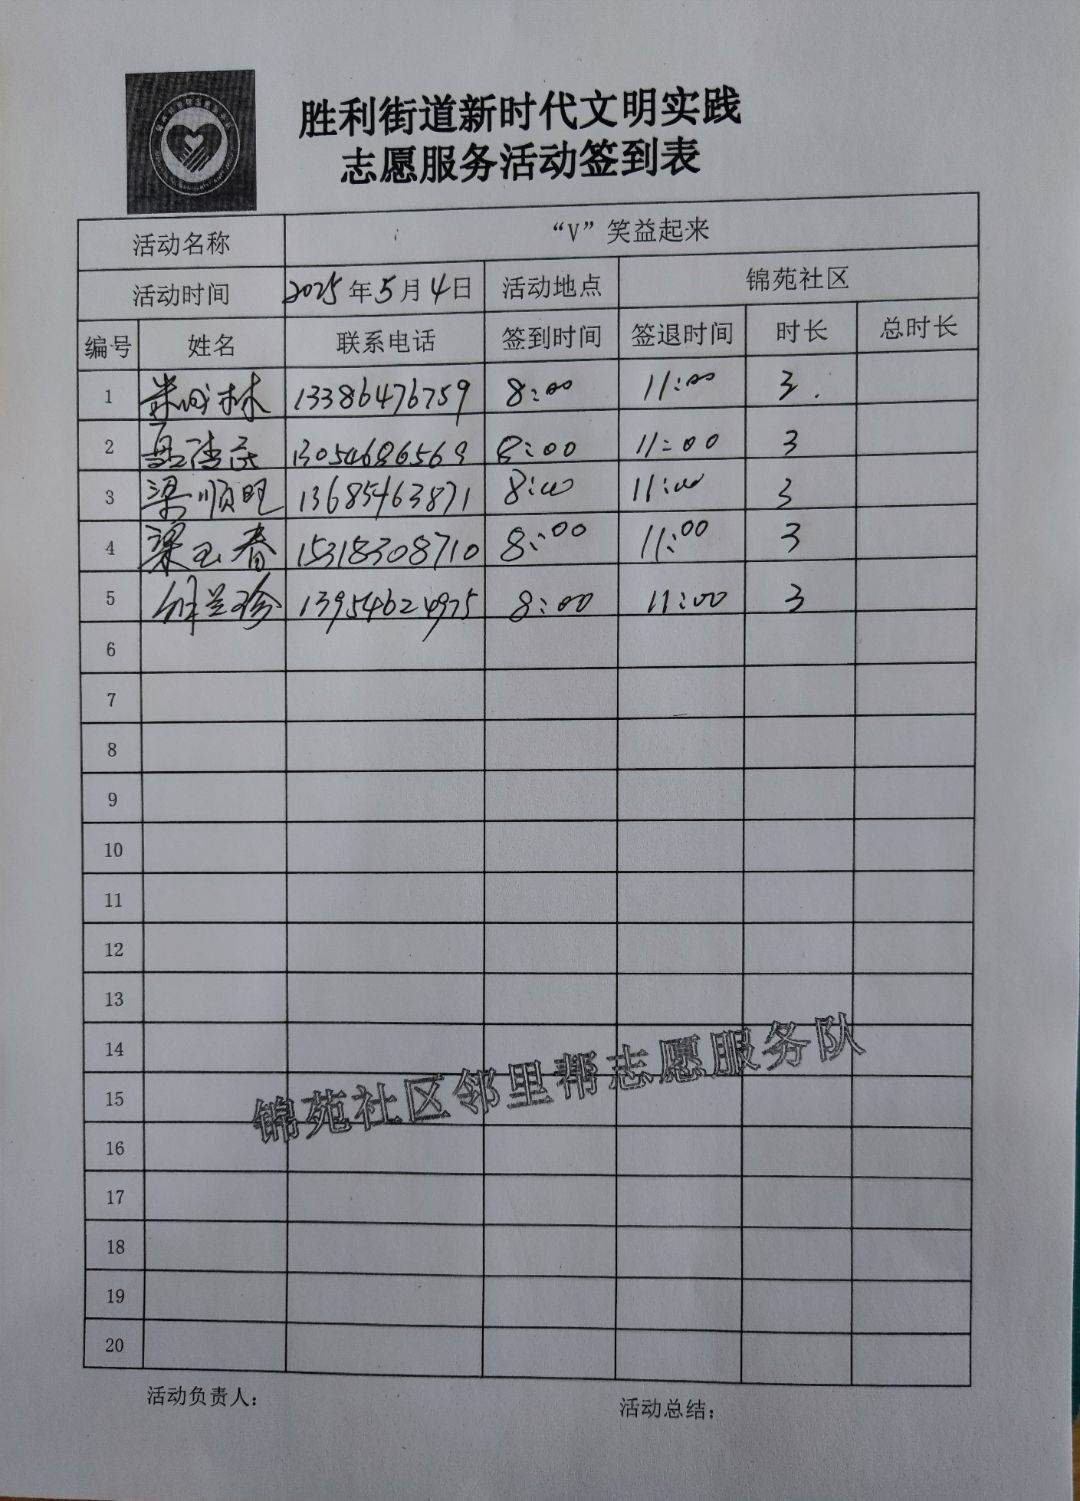 胜利街道新时代文明实践
志愿服务活动签到表
活动名称 “V”笑益起来
活动时间 2025年5月4日 活动地点 锦苑社区
编号 姓名 联系电话 签到时间 签退时间 时长 总时长
1 林 13386476759 8:00 11:00 3
2 13054686569 8:00 11:00 3
3 梁顺旺 13685463871 8:00 11:00 3
4 梁玉春 15318308710 8:00 11:00 3
5 兰珍 13954624975 8:00 11:00 3
6
7
8
9
10
11
12
13
14
15
锦苑社区邻里帮志愿服务队
16
17
18
19
20
活动负责人: 活动总结: